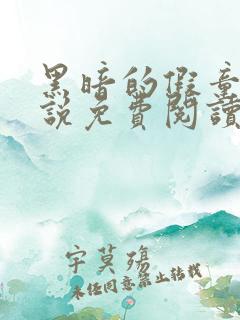 黑暗的假童
說免費閱讀
宇莫殤
未经同意禁止转载